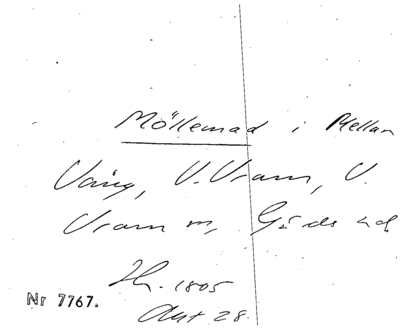 Möllemad i Mellan
Vång, V. Vram, V.
Vram sn, Gärds hd
Th. 1805
Akt 28.
Nr 7767.